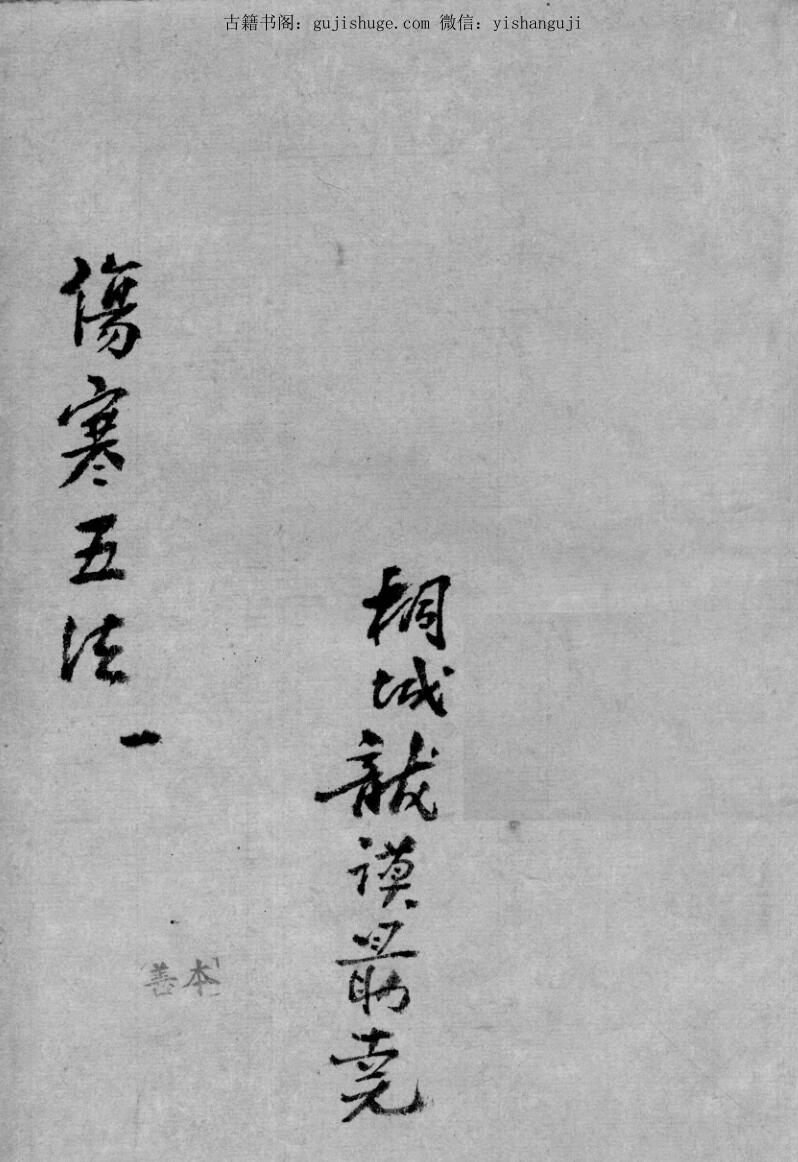 古籍书阁：gujishuge.com 微信：yishanguji
桐城龍謨最堯
傷寒五法
一
善本